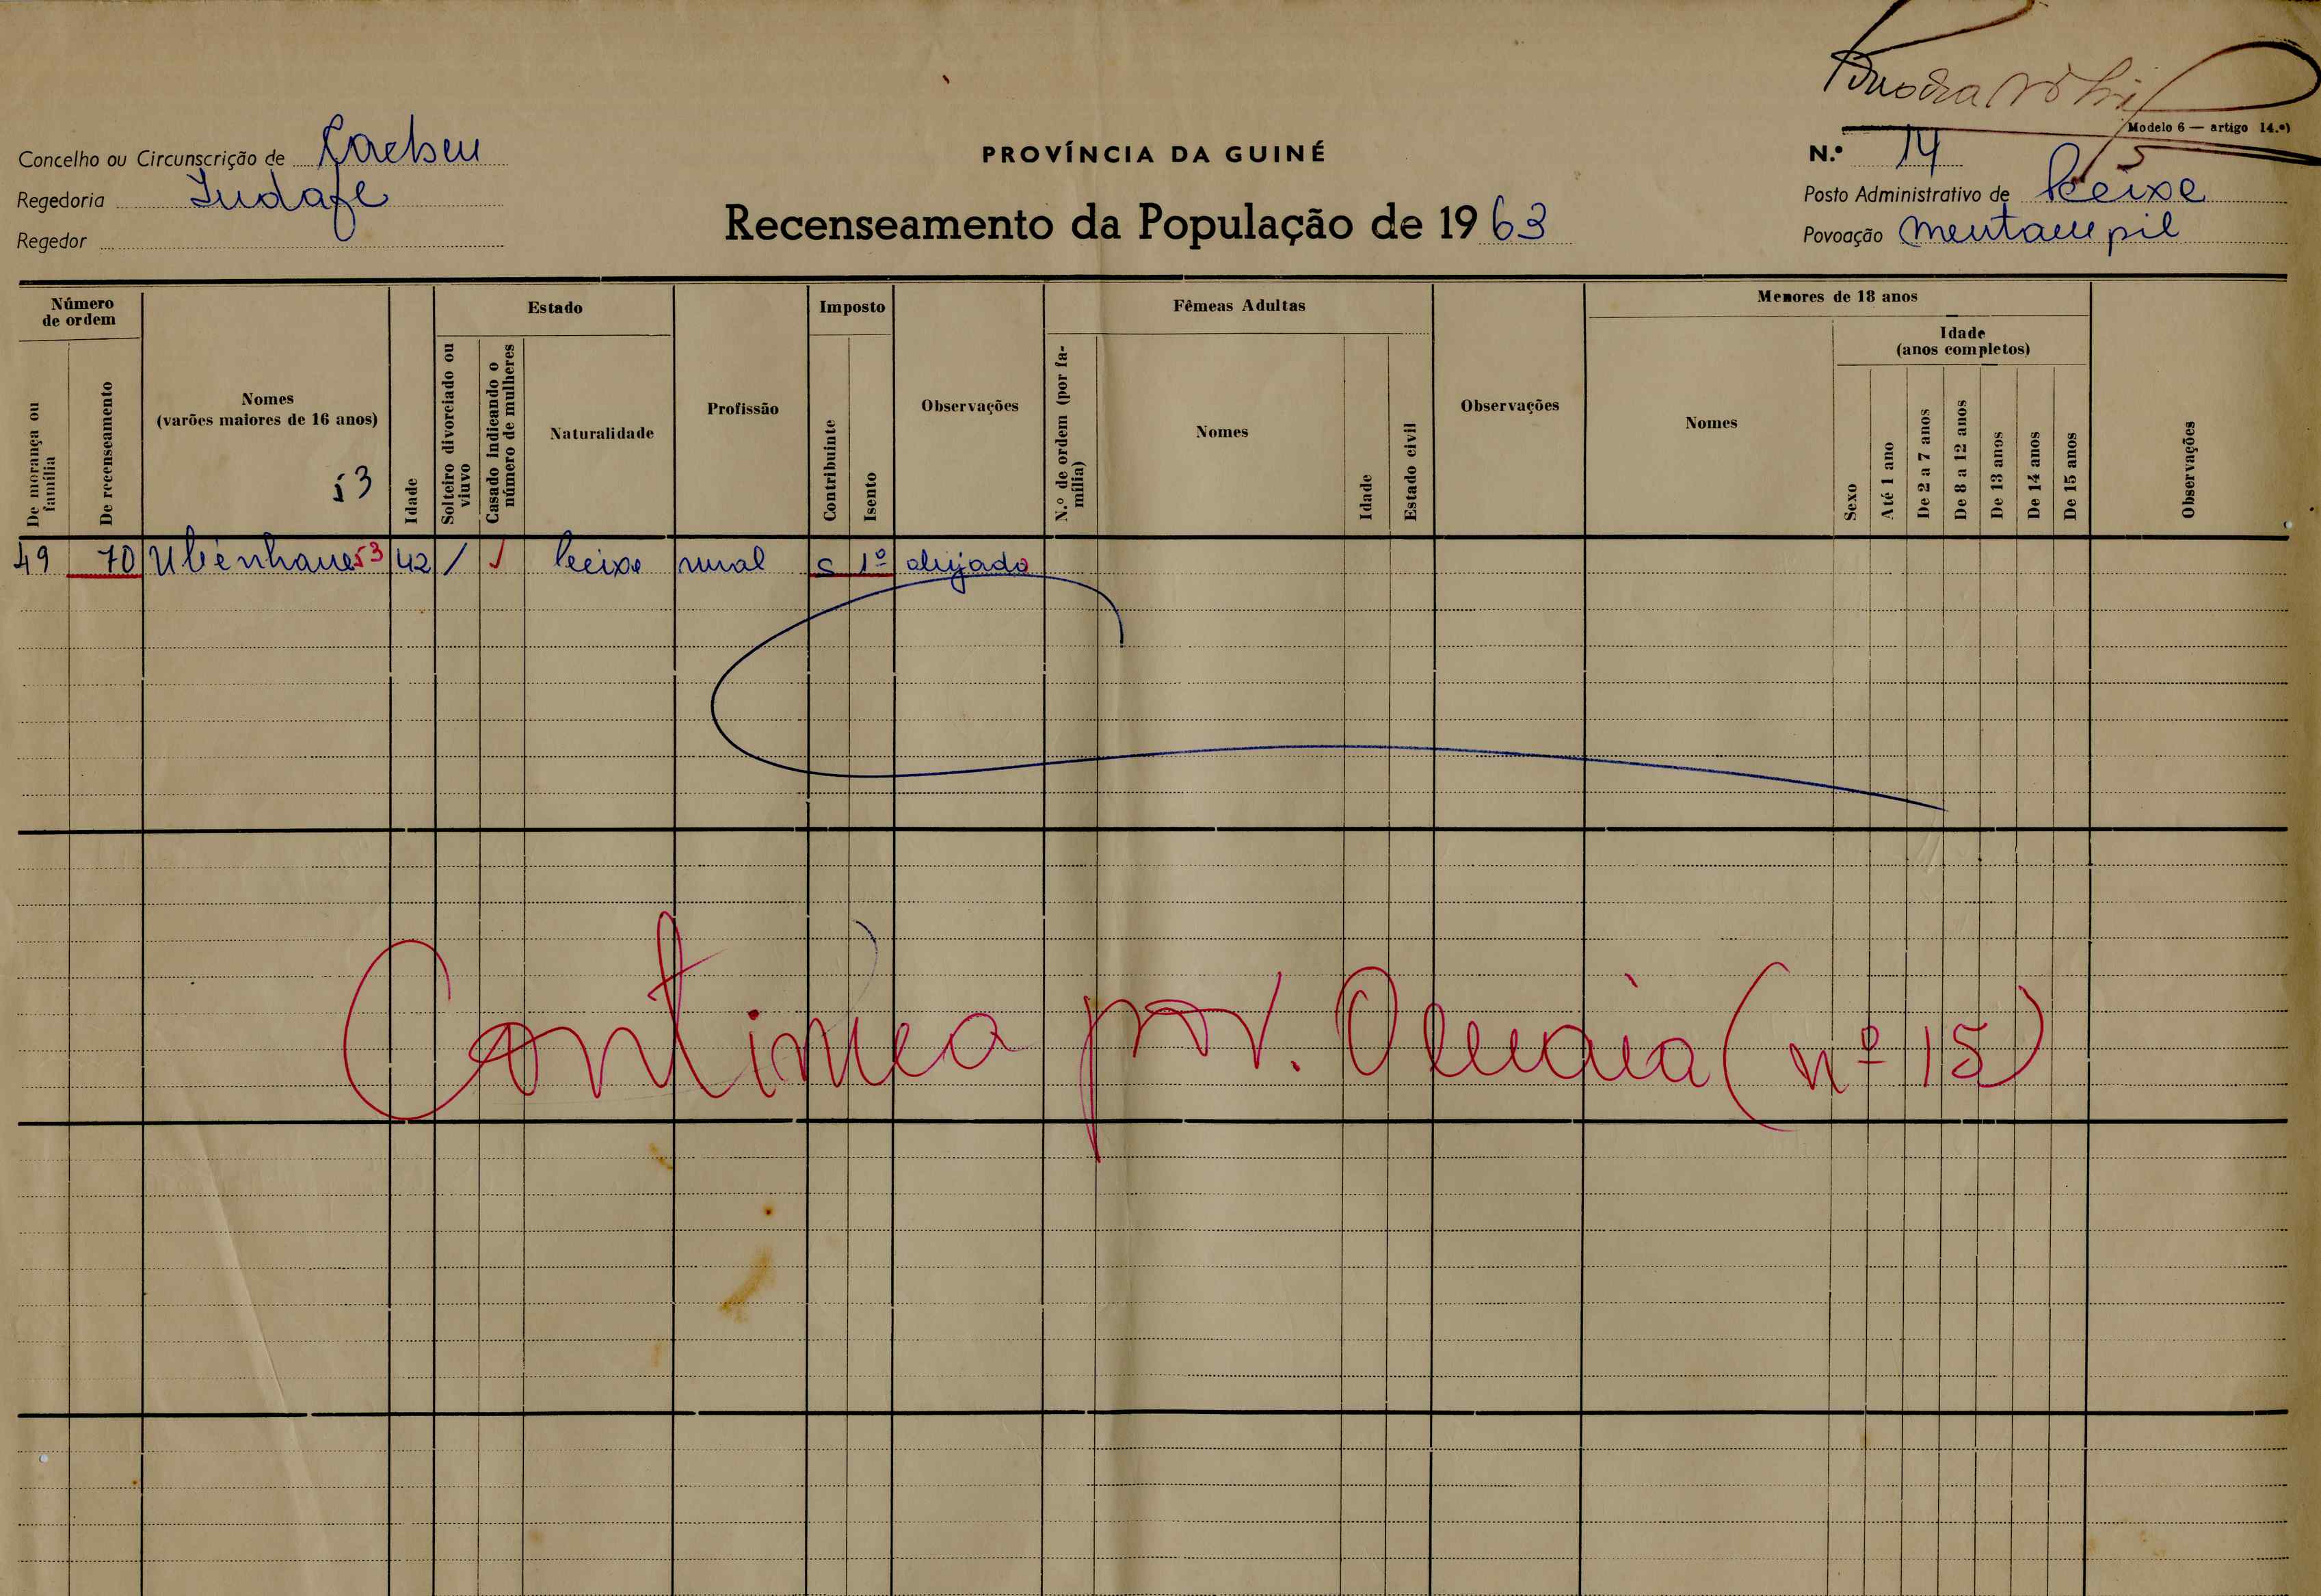 Modelo 6 — artigo 14.º)
Concelho ou Circunscrição de Cacheu
PROVÍNCIA DA GUINÉ
N.º 14
Regedoria
Posto Administrativo de
Regedor
Recenseamento da População de 1963
Povoação
Número de ordem
De morança ou família
De recenseamento
Nomes
(varões maiores de 16 anos)
53
Idade
Estado
Solteiro divorciado ou viuvo
Casado indicando o número de mulheres
Naturalidade
Profissão
Imposto
Contribuinte
Isento
Observações
Fêmeas Adultas
N.º de ordem (por família)
Nomes
Idade
Estado civil
Observações
Menores de 18 anos
Nomes
Sexo
Idade
(anos completos)
Até 1 ano
De 2 a 7 anos
De 8 a 12 anos
De 13 anos
De 14 anos
De 15 anos
Observações
49 70 53 42 / rural c 1º aleijado
Continua pov. (nº 15)